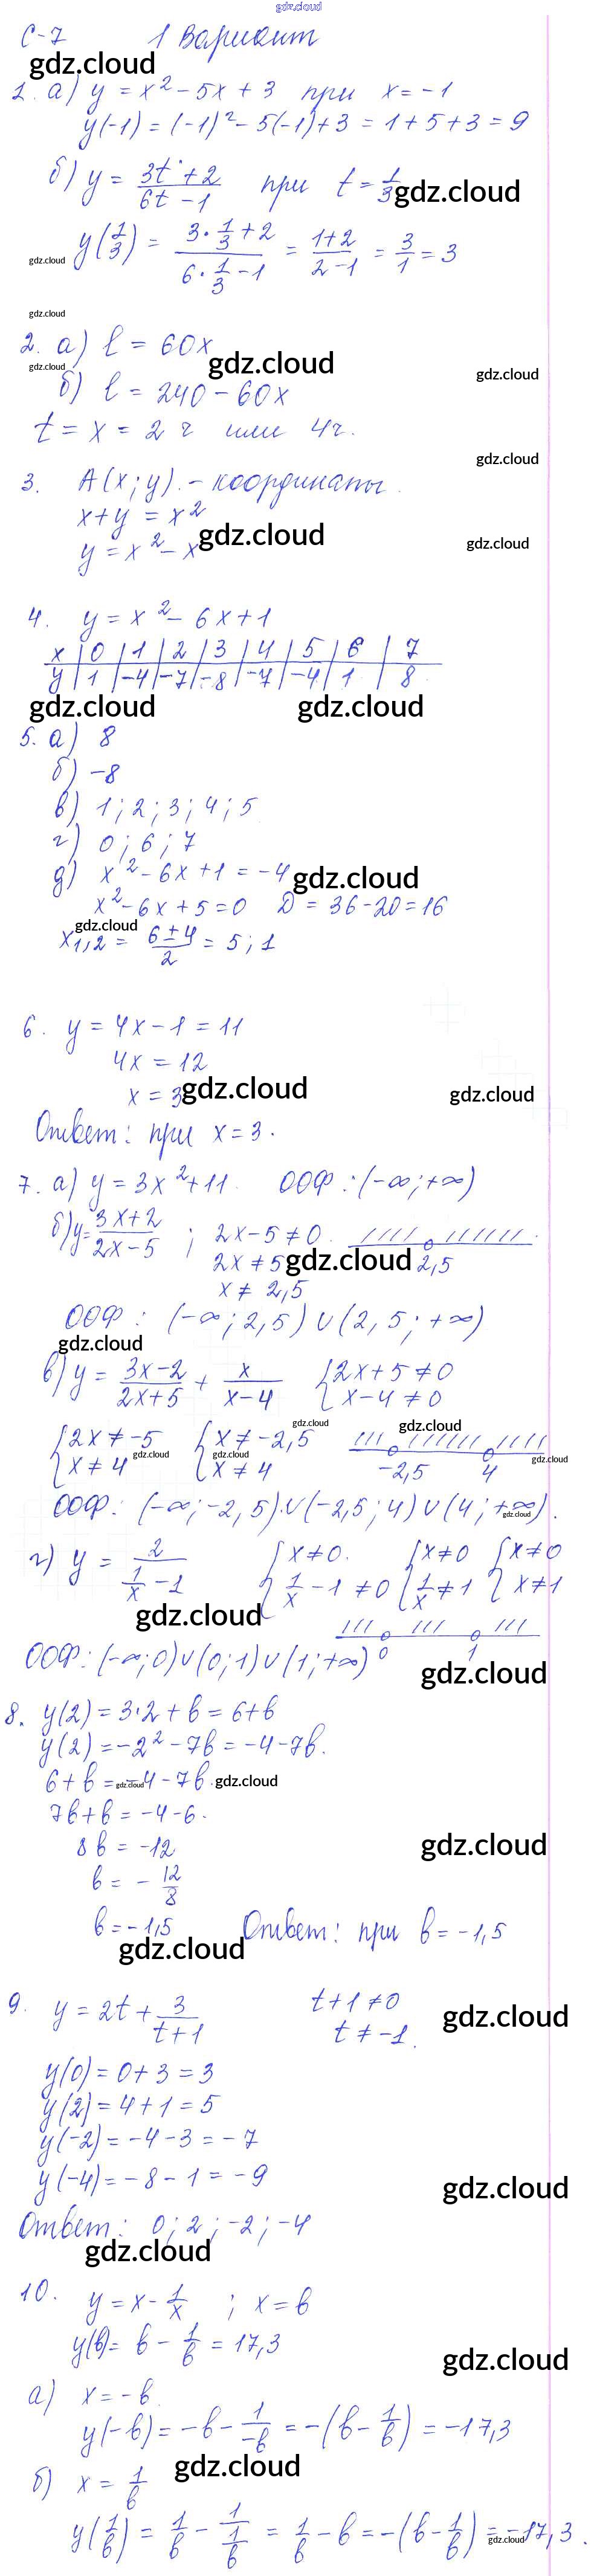 gdz.cloud
С-7 1 Вариант
gdz.cloud
1. а) y = x² - 5x + 3 при x = -1
y(-1) = (-1)² - 5(-1) + 3 = 1 + 5 + 3 = 9
б) y = (3t + 2)/(6t - 1) при t = 1/3 gdz.cloud
y(1/3) = (3·1/3 + 2)/(6·1/3 - 1) = (1+2)/(2-1) = 3/1 = 3
gdz.cloud
gdz.cloud
2. а) l = 60x
gdz.cloud gdz.cloud gdz.cloud
б) l = 240 - 60x
t = x = 2 ч или 4ч.
gdz.cloud
3. A(x; y) - координаты.
x + y = x²
y = x² - x gdz.cloud gdz.cloud
4. y = x² - 6x + 1
x | 0 | 1 | 2 | 3 | 4 | 5 | 6 | 7
y | 1 | -4 | -7 | -8 | -7 | -4 | 1 | 8
gdz.cloud gdz.cloud
5. а) 8
б) -8
в) 1; 2; 3; 4; 5
г) 0; 6; 7
д) x² - 6x + 1 = -4 gdz.cloud
x² - 6x + 5 = 0 D = 36 - 20 = 16
gdz.cloud
x1,2 = (6 ± 4)/2 = 5; 1
6. y = 4x - 1 = 11
4x = 12
x = 3 gdz.cloud gdz.cloud
Ответ: при x = 3.
7. а) y = 3x² + 11. ООФ: (-∞; +∞)
б) y = (3x + 2)/(2x - 5) ; 2x - 5 ≠ 0.
2x ≠ 5 gdz.cloud 2,5
x ≠ 2,5
ООФ: (-∞; 2,5) ∪ (2,5; +∞)
gdz.cloud
в) y = (3x - 2)/(2x + 5) + x/(x - 4) { 2x + 5 ≠ 0
x - 4 ≠ 0
gdz.cloud gdz.cloud
{ 2x ≠ -5 { x ≠ -2,5
gdz.cloud gdz.cloud gdz.cloud
x ≠ 4 x ≠ 4 -2,5 4
ООФ: (-∞; -2,5) ∪ (-2,5; 4) ∪ (4; +∞).
gdz.cloud
г) y = 2/(1/x - 1) { x ≠ 0. { x ≠ 0 { x ≠ 0
1/x - 1 ≠ 0 1/x ≠ 1 x ≠ 1
gdz.cloud
ООФ: (-∞; 0) ∪ (0; 1) ∪ (1; +∞) 0 1
gdz.cloud
8. y(2) = 3·2 + b = 6 + b
y(2) = -2² - 7b = -4 - 7b.
6 + b = -4 - 7b.
gdz.cloud gdz.cloud
7b + b = -4 - 6.
8b = -12 gdz.cloud
b = - 12/8
b = -1,5 Ответ: при b = -1,5
gdz.cloud
9. y = 2t + 3/(t + 1) t + 1 ≠ 0 gdz.cloud
t ≠ -1.
y(0) = 0 + 3 = 3
y(2) = 4 + 1 = 5
y(-2) = -4 - 3 = -7
y(-4) = -8 - 1 = -9 gdz.cloud
Ответ: 0; 2; -2; -4
gdz.cloud
10. y = x - 1/x ; x = b
y(b) = b - 1/b = 17,3 gdz.cloud
а) x = -b
y(-b) = -b - 1/(-b) = -(b - 1/b) = -17,3
gdz.cloud
б) x = 1/b
y(1/b) = 1/b - 1/(1/b) = 1/b - b = -(b - 1/b) = -17,3.
gdz.cloud